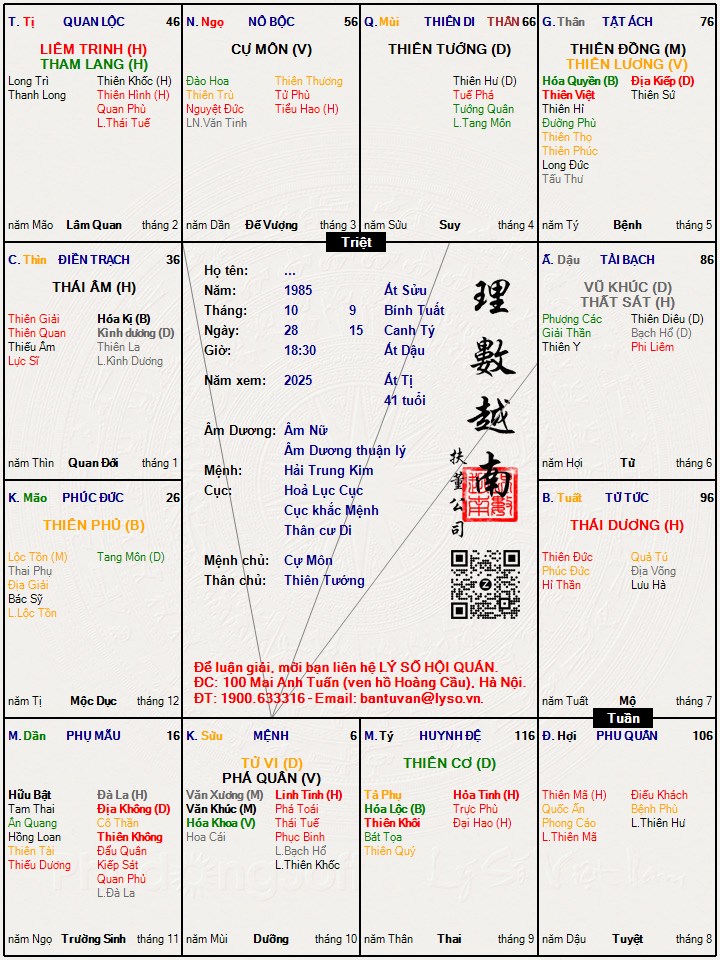 T. Tị QUAN LỘC 46
LIÊM TRINH (H)
THAM LANG (H)
Long Trì Thiên Khốc (H)
Thanh Long Thiên Hình (H)
Quan Phù
L.Thái Tuế
năm Mão Lâm Quan tháng 2
N. Ngọ NÔ BỘC 56
CỰ MÔN (V)
Đào Hoa Thiên Thương
Thiên Trù Tử Phù
Nguyệt Đức Tiểu Hao (H)
LN.Văn Tinh
năm Dần Đế Vượng tháng 3
Q. Mùi THIÊN DI THÂN 66
THIÊN TƯỚNG (D)
Thiên Hư (D)
Tuế Phá
Tướng Quân
L.Tang Môn
năm Sửu Suy tháng 4
G. Thân TẬT ÁCH 76
THIÊN ĐỒNG (M)
THIÊN LƯƠNG (V)
Hóa Quyền (B) Địa Kiếp (D)
Thiên Việt Thiên Sứ
Thiên Hỉ
Đường Phù
Thiên Thọ
Thiên Phúc
Long Đức
Tấu Thư
năm Tý Bệnh tháng 5
Triệt
C. Thìn ĐIỀN TRẠCH 36
THÁI ÂM (H)
Thiên Giải Hóa Kị (B)
Thiên Quan Kình dương (D)
Thiếu Âm Thiên La
Lực Sĩ L.Kình Dương
năm Thìn Quan Đới tháng 1
Họ tên: ...
Năm: 1985 Ất Sửu
Tháng: 10 9 Bính Tuất
Ngày: 28 15 Canh Tý
Giờ: 18:30 Ất Dậu
Năm xem: 2025 Ất Tị
41 tuổi
Âm Dương: Âm Nữ
Âm Dương thuận lý
Mệnh: Hải Trung Kim
Cục: Hoả Lục Cục
Cục khắc Mệnh
Thân cư Di
Mệnh chủ: Cự Môn
Thân chủ: Thiên Tướng
理數越南
扶董公司
Để luận giải, mời bạn liên hệ LÝ SỐ HỘI QUÁN.
ĐC: 100 Mai Anh Tuấn (ven hồ Hoàng Cầu), Hà Nội.
ĐT: 1900.633316 - Email: bantuvan@lyso.vn.
Ấ. Dậu TÀI BẠCH 86
VŨ KHÚC (D)
THẤT SÁT (H)
Phượng Các Thiên Diêu (D)
Giải Thần Bạch Hổ (D)
Thiên Y Phi Liêm
năm Hợi Tử tháng 6
K. Mão PHÚC ĐỨC 26
THIÊN PHỦ (B)
Lộc Tồn (M) Tang Môn (D)
Thai Phụ
Địa Giải
Bác Sỹ
L.Lộc Tồn
năm Tị Mộc Dục tháng 12
B. Tuất TỬ TỨC 96
THÁI DƯƠNG (H)
Thiên Đức Quả Tú
Phúc Đức Địa Võng
Hỉ Thần Lưu Hà
năm Tuất Mộ tháng 7
Tuần
M. Dần PHỤ MẪU 16
Hữu Bật Đà La (H)
Tam Thai Địa Không (D)
Ân Quang Cô Thần
Hồng Loan Thiên Không
Thiên Tài Đẩu Quân
Thiếu Dương Kiếp Sát
Quan Phủ
L.Đà La
năm Ngọ Trường Sinh tháng 11
K. Sửu MỆNH 6
TỬ VI (D)
PHÁ QUÂN (V)
Văn Xương (M) Linh Tinh (H)
Văn Khúc (M) Phá Toái
Hóa Khoa (V) Thái Tuế
Hoa Cái Phục Binh
L.Bạch Hổ
L.Thiên Khốc
năm Mùi Dưỡng tháng 10
M. Tý HUYNH ĐỆ 116
THIÊN CƠ (D)
Tả Phụ Hỏa Tinh (H)
Hóa Lộc (B) Trực Phù
Thiên Khôi Đại Hao (H)
Bát Tọa
Thiên Quý
năm Thân Thai tháng 9
Đ. Hợi PHU QUÂN 106
Thiên Mã (H) Điếu Khách
Quốc Ấn Bệnh Phù
Phong Cáo L.Thiên Hư
L.Thiên Mã
năm Dậu Tuyệt tháng 8